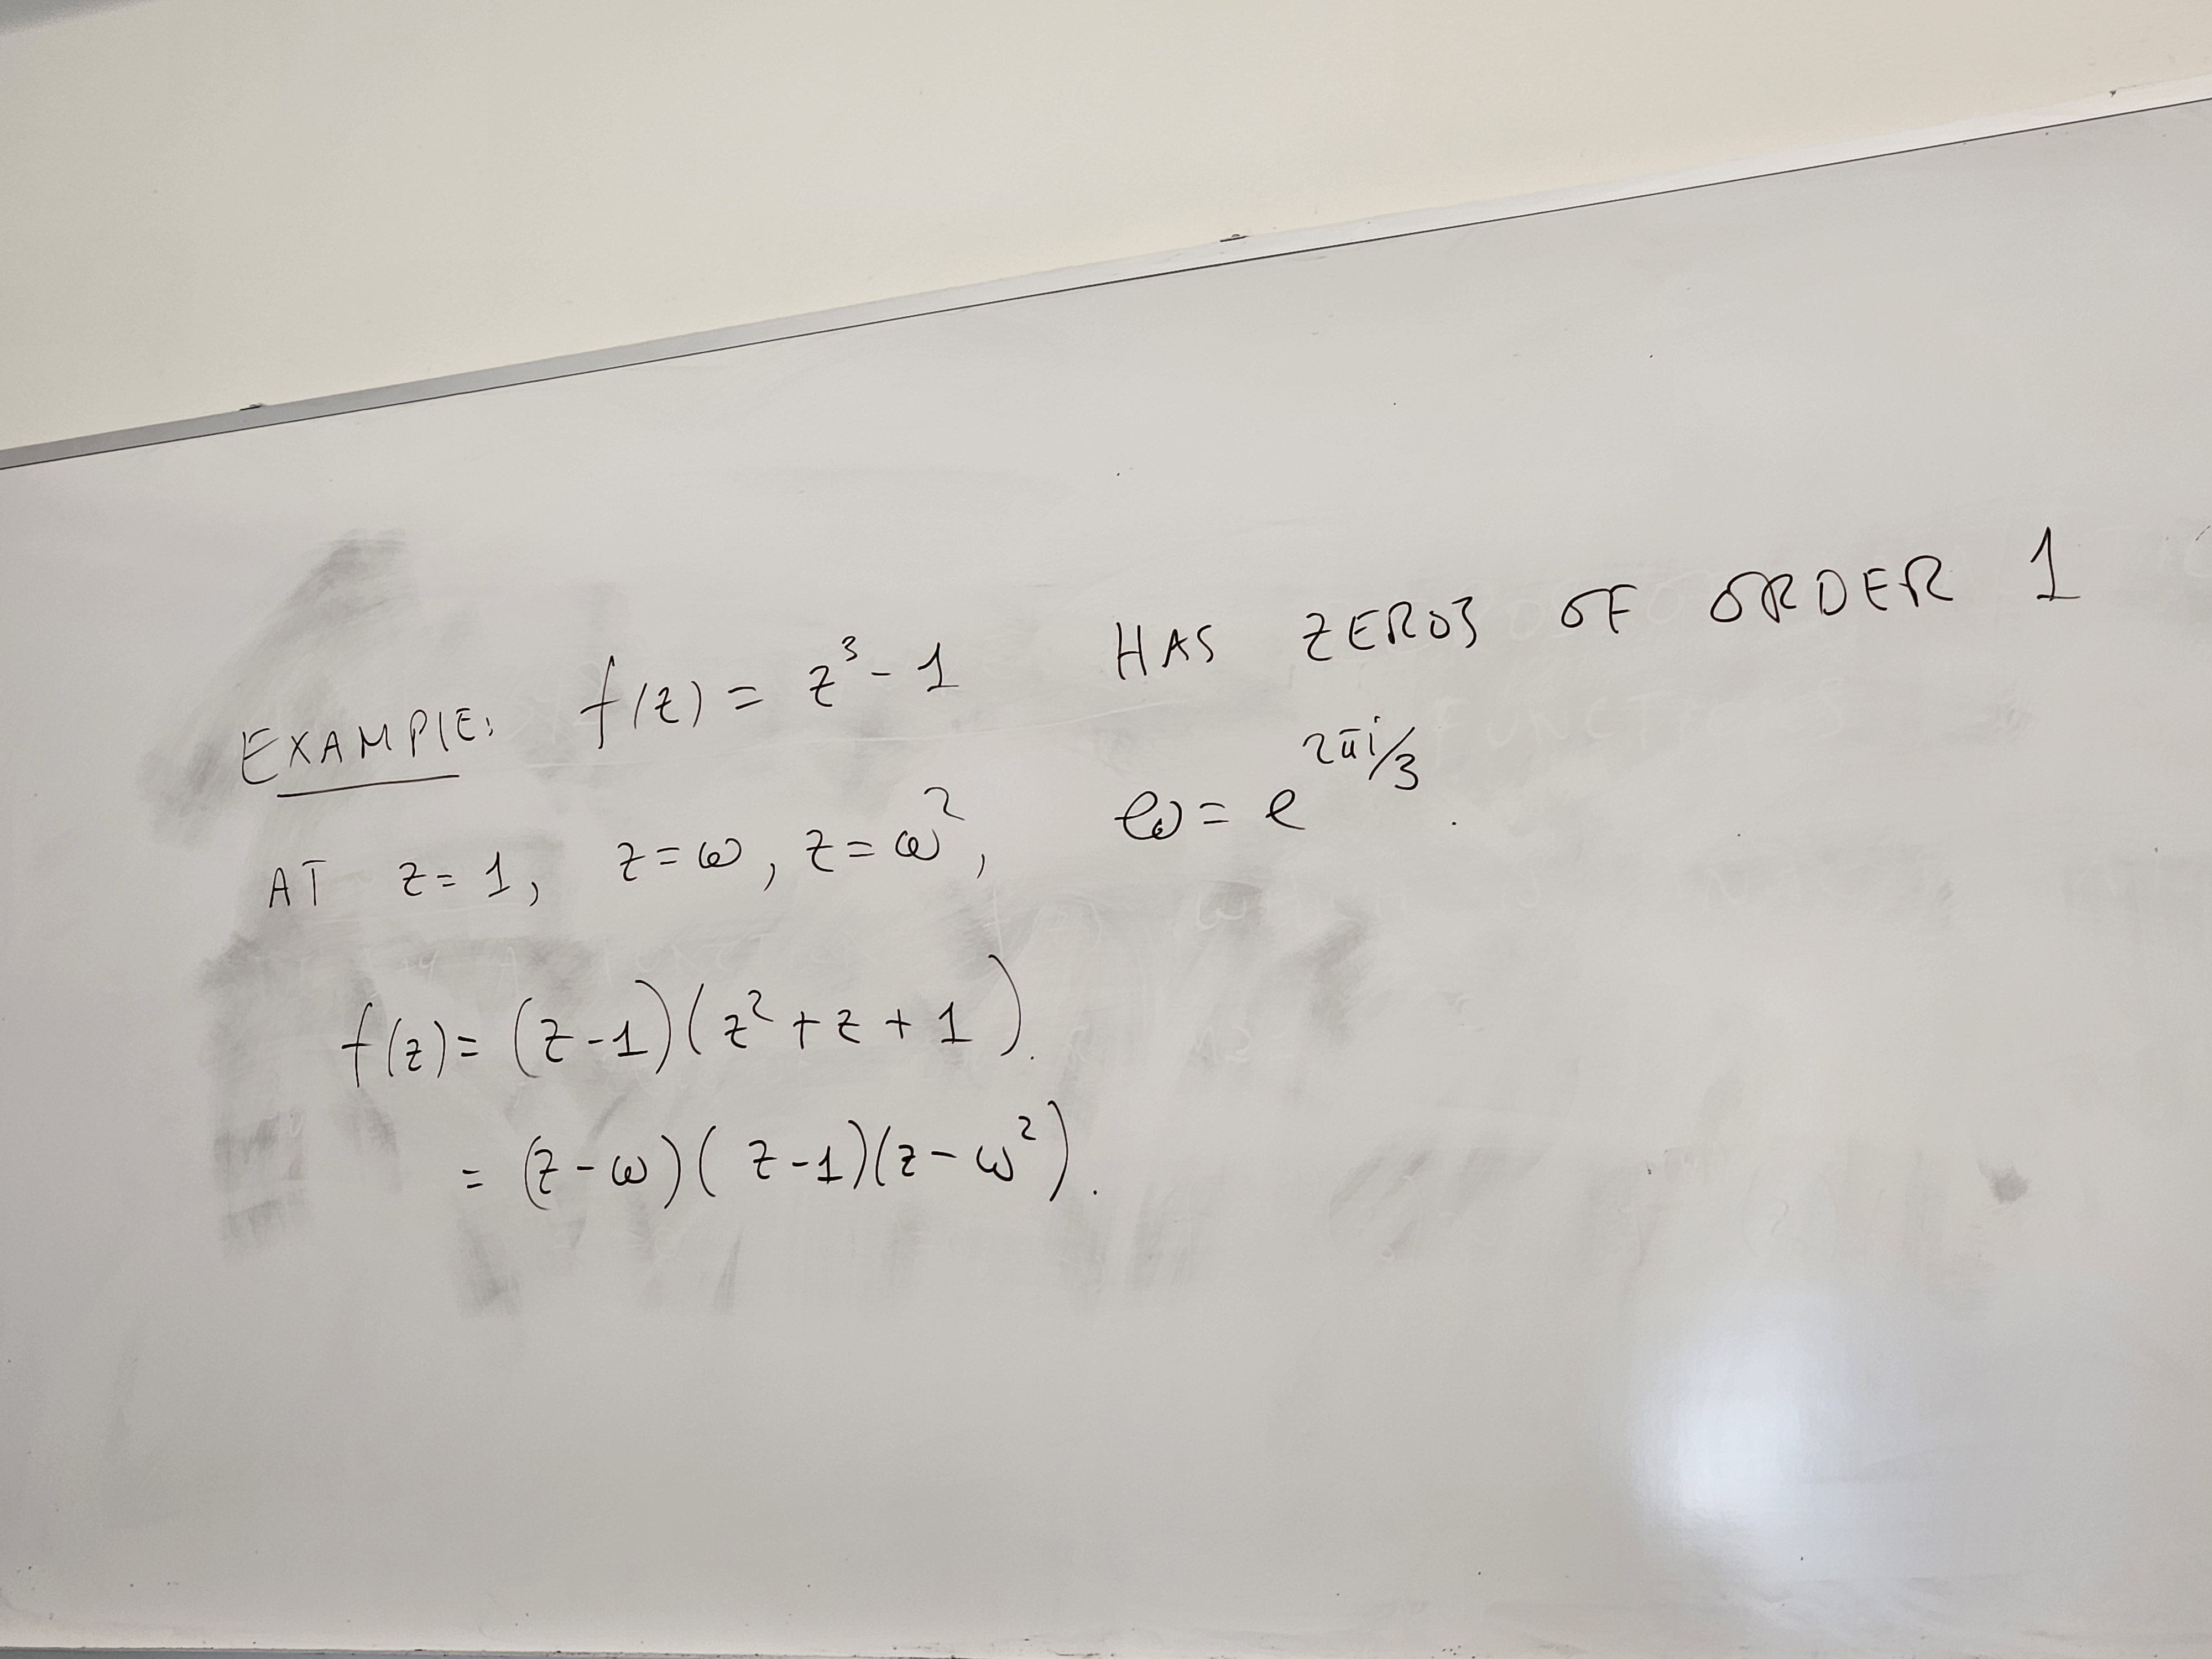 EXAMPLE: f(z) = z³ - 1 HAS ZEROS OF ORDER 1
AT z = 1, z = ω, z = ω², ω = e^{2πi/3}.
f(z) = (z-1)(z² + z + 1).
= (z - ω)(z - 1)(z - ω²).